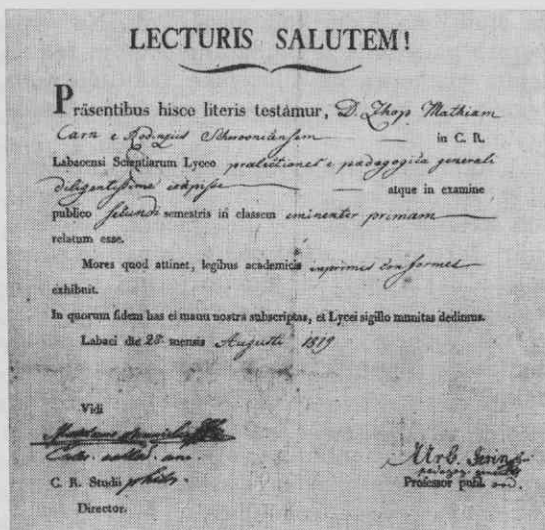 LECTURIS SALUTEM!
Präsentibus hisce literis testámur, D. Zhop Mathiam
Carn e in C. R.
Labacensi Scientiarum Lyceo prælectiones e pædagogica generali
diligentissime excepisse atque in examine
publico secundi semestris in classem eminenter primam
relatum esse.
Mores quod attinet, legibus academicis inprimis conformes
exhibuit.
In quorum fidem has ei manu nostra subscriptas, et Lycei sigillo munitas dedimus.
Labaci die 28 mensis Augusti 1819
Vidi
C. R. Studii philos.
Director.
Urb.
Professor publ. ord.